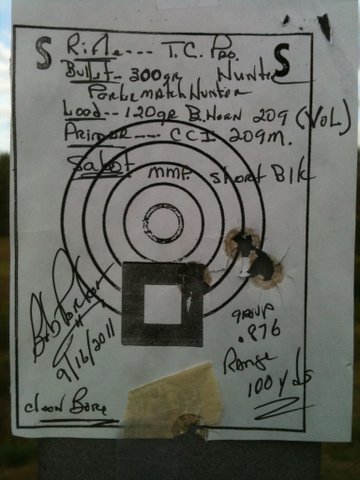 S Rifle --- T.C. Pro
Bullet - 300gr Hunter S
Parker match Hunter
Load -- 120gr B.Horn 209 (VOL)
Primer --- CCI 209M.
Sabot mmp short Blk
Bob Parker
9/16/2011
group
.876
Range
100 yds
clean Bore